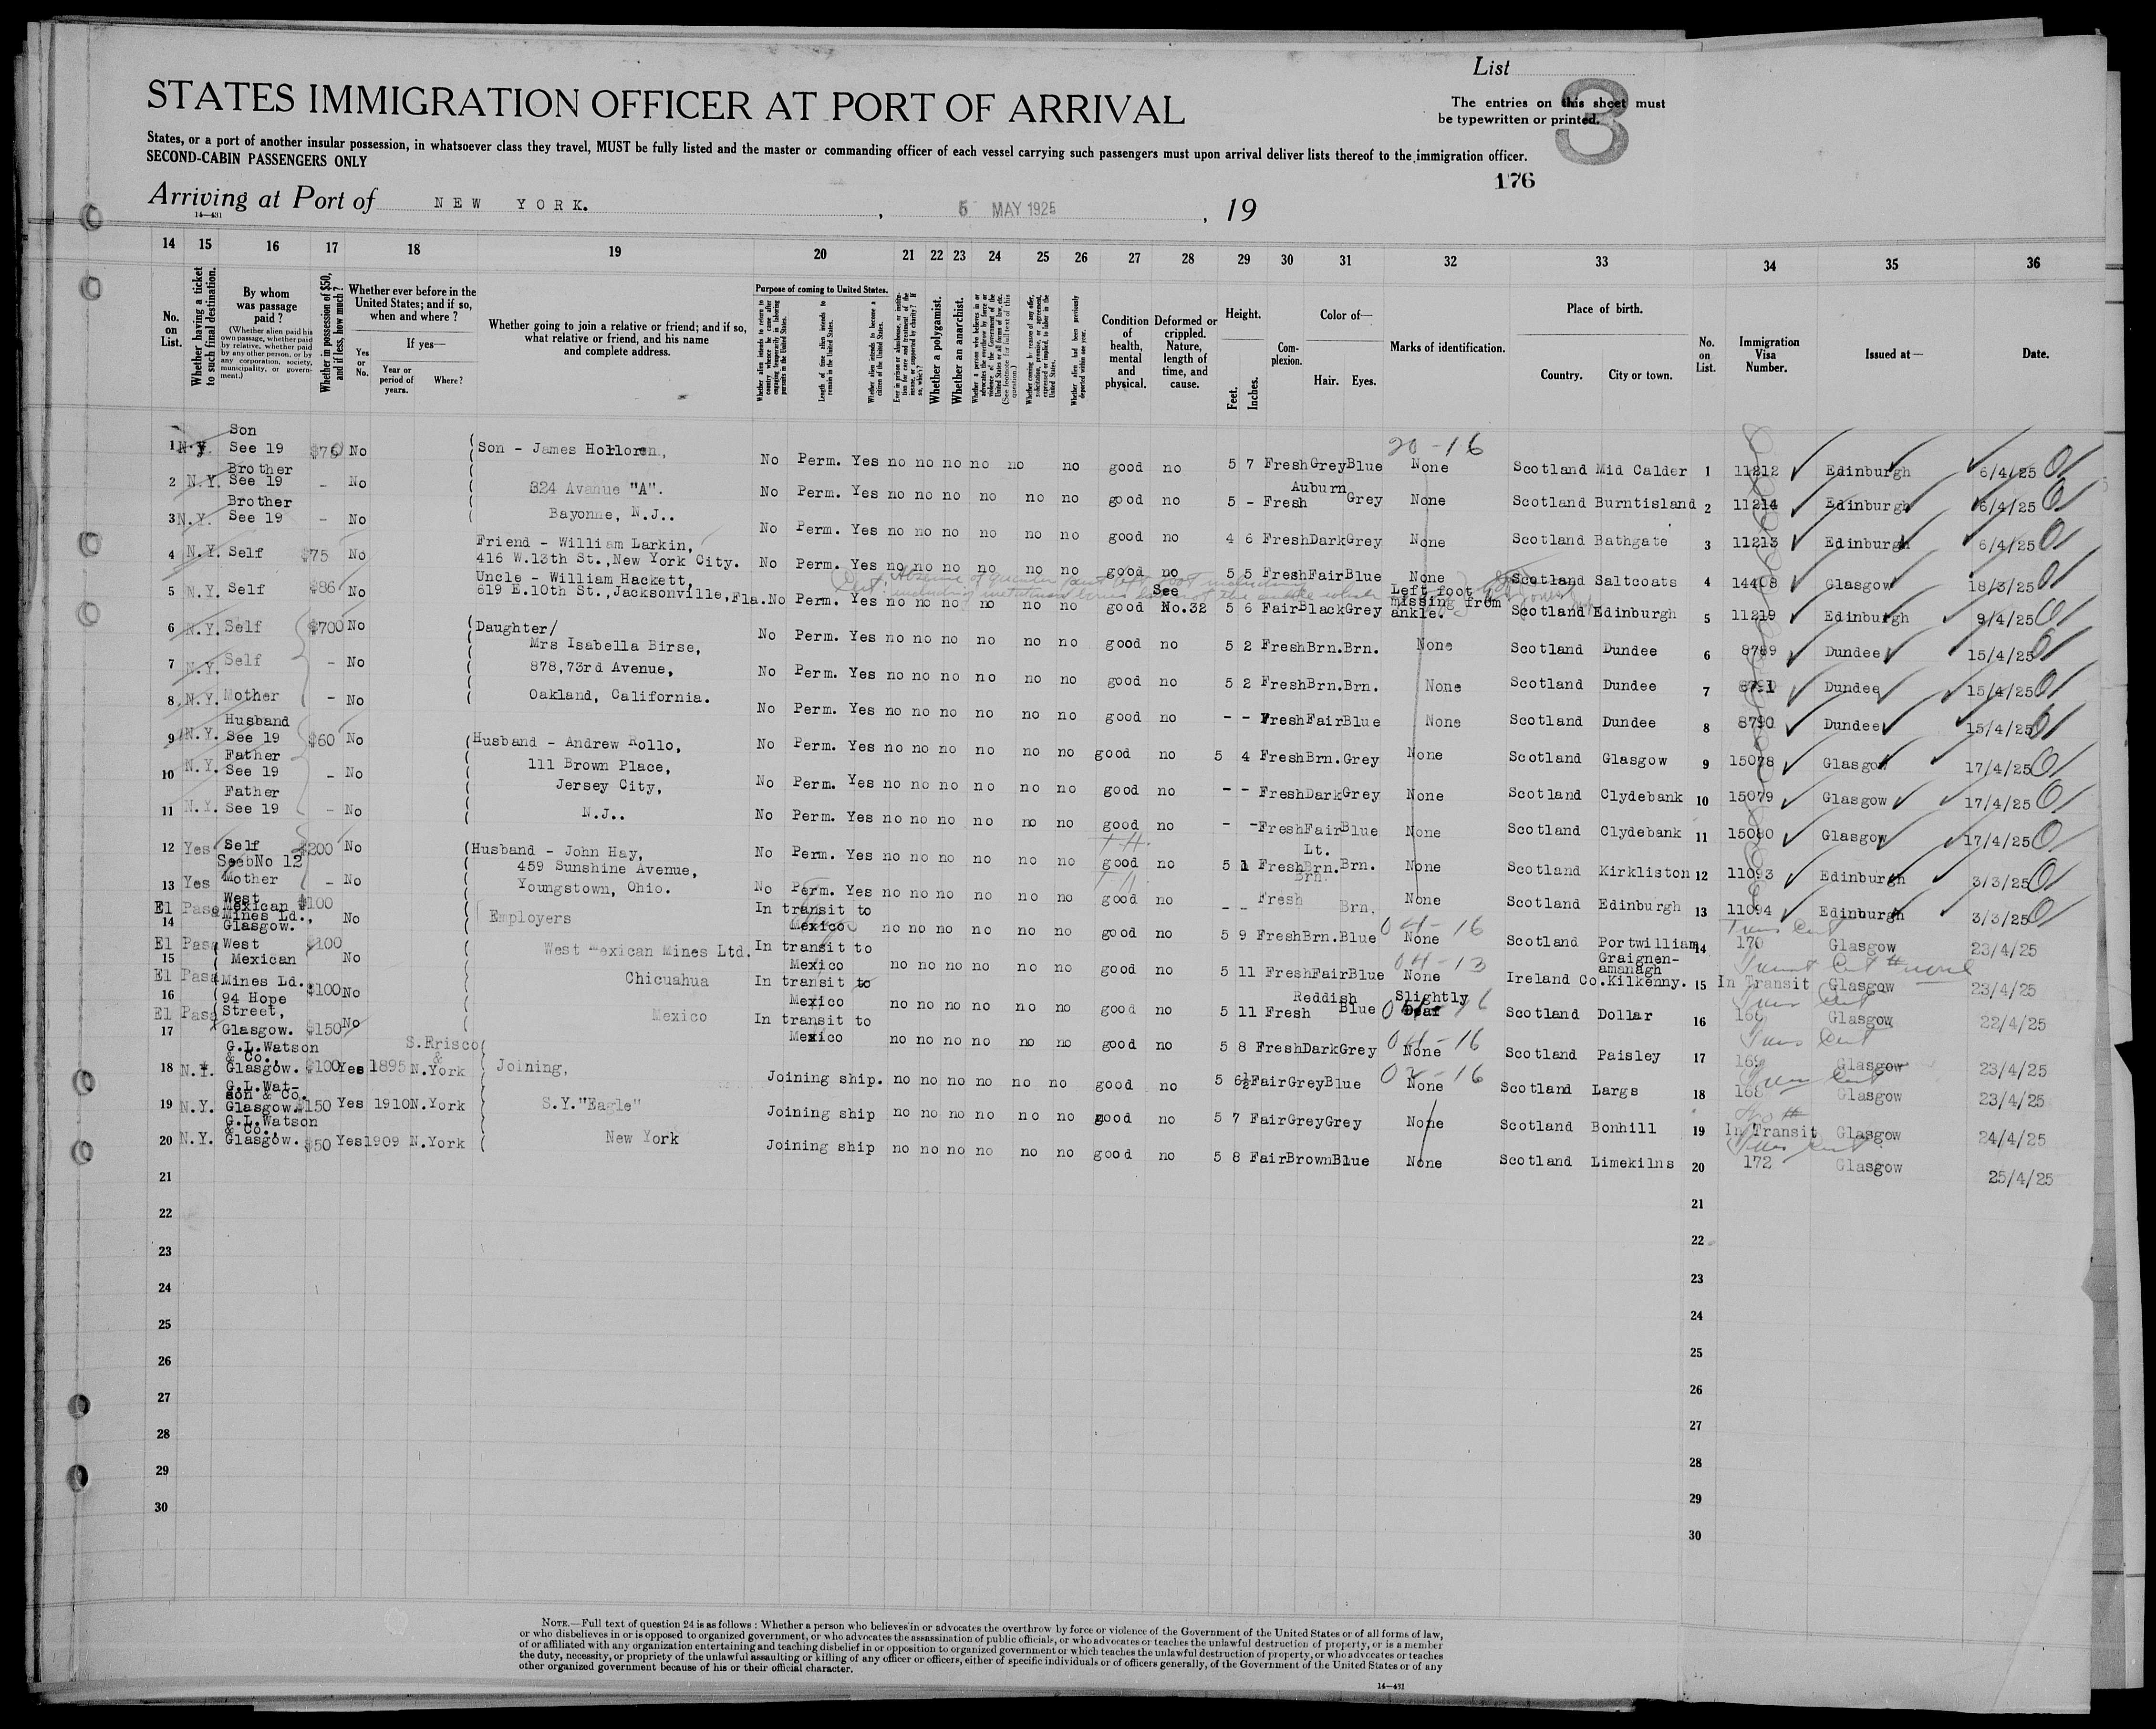 List
3
STATES IMMIGRATION OFFICER AT PORT OF ARRIVAL
The entries on this sheet must
be typewritten or printed.
States, or a port of another insular possession, in whatsoever class they travel, MUST be fully listed and the master or commanding officer of each vessel carrying such passengers must upon arrival deliver lists thereof to the immigration officer.
SECOND-CABIN PASSENGERS ONLY
176
Arriving at Port of NEW YORK. , 5 MAY 1925 , 19
14—431
14 15 16 17 18 19 20 21 22 23 24 25 26 27 28 29 30 31 32 33 34 35 36
No. on List.
Whether having a ticket to such final destination.
By whom was passage paid?
(Whether alien paid his own passage, whether paid by relative, whether paid by any other person, or by any corporation, society, municipality, or government.)
Whether in possession of $50, and if less, how much?
Whether ever before in the United States; and if so, when and where?
Yes or No.
If yes—
Year or period of years.
Where?
Whether going to join a relative or friend; and if so, what relative or friend, and his name and complete address.
Purpose of coming to United States.
Whether alien intends to return to country whence he came after engaging temporarily in laboring pursuits in the United States.
Length of time alien intends to remain in the United States.
Whether alien intends to become a citizen of the United States.
Whether a polygamist.
Whether an anarchist.
Whether alien had been previously deported within one year.
Condition of health, mental and physical.
Deformed or crippled. Nature, length of time, and cause.
Height.
Feet.
Inches.
Complexion.
Color of—
Hair.
Eyes.
Marks of identification.
Place of birth.
Country.
City or town.
No. on List.
Immigration Visa Number.
Issued at—
Date.
20-16
1 N.Y. Son See 19 $76 No Son - James Holloren, No Perm. Yes no no no no no no good no 5 7 Fresh Grey Blue None Scotland Mid Calder 1 11212 Edinburgh 6/4/25
2 N.Y. Brother See 19 - No 324 Avenue "A". No Perm. Yes no no no no no no good no 5 - Fresh Auburn Grey None Scotland Burntisland 2 11214 Edinburgh 6/4/25
3 N.Y. Brother See 19 - No Bayonne, N.J.. No Perm. Yes no no no no no no good no 4 6 Fresh Dark Grey None Scotland Bathgate 3 11213 Edinburgh 6/4/25
4 N.Y. Self $75 No Friend - William Larkin, 416 W.13th St., New York City. No Perm. Yes no no no no no no good no 5 5 Fresh Fair Blue None Scotland Saltcoats 4 14408 Glasgow 18/3/25
5 N.Y. Self $86 No Uncle - William Hackett, 619 E.10th St., Jacksonville, Fla. No Perm. Yes no no no no no no good See No.32 5 6 Fair Black Grey Left foot missing from ankle. Scotland Edinburgh 5 11219 Edinburgh 9/4/25
6 N.Y. Self $700 No Daughter/ Mrs Isabella Birse, No Perm. Yes no no no no no no good no 5 2 Fresh Brn. Brn. None Scotland Dundee 6 8789 Dundee 15/4/25
7 N.Y. Self - No 878, 73rd Avenue, No Perm. Yes no no no no no no good no 5 2 Fresh Brn. Brn. None Scotland Dundee 7 8791 Dundee 15/4/25
8 N.Y. Mother - No Oakland, California. No Perm. Yes no no no no no no good no - - Fresh Fair Blue None Scotland Dundee 8 8790 Dundee 15/4/25
9 N.Y. Husband See 19 $60 No Husband - Andrew Rollo, No Perm. Yes no no no no no no good no 5 4 Fresh Brn. Grey None Scotland Glasgow 9 15078 Glasgow 17/4/25
10 N.Y. Father See 19 - No 111 Brown Place, Jersey City, No Perm. Yes no no no no no no good no - - Fresh Dark Grey None Scotland Clydebank 10 15079 Glasgow 17/4/25
11 N.Y. Father See 19 - No N.J.. No Perm. Yes no no no no no no good no - - Fresh Fair Blue None Scotland Clydebank 11 15080 Glasgow 17/4/25
12 Yes Self $200 No Husband - John Hay, 459 Sunshine Avenue, No Perm. Yes no no no no no no good no 5 1 Fresh Lt. Brn. Brn. None Scotland Kirkliston 12 11093 Edinburgh 3/3/25
13 Yes See No 12 Mother - No Youngstown, Ohio. No Perm. Yes no no no no no no good no - - Fresh Brn. Brn. None Scotland Edinburgh 13 11094 Edinburgh 3/3/25
14 El Paso West Mexican Mines Ld., Glasgow. $100 No Employers In transit to Mexico no no no no no no good no 5 9 Fresh Brn. Blue 04-16 None Scotland Portwilliam 14 170 Glasgow 23/4/25
15 El Paso West Mexican $100 No West Mexican Mines Ltd. In transit to Mexico no no no no no no good no 5 11 Fresh Fair Blue 04-13 None Ireland Graignenamanagh Co.Kilkenny. 15 In Transit Glasgow 23/4/25
16 El Paso Mines Ld. 94 Hope $100 No Chicuahua In transit to Mexico no no no no no no good no 5 11 Fresh Reddish Blue Slightly Deaf Scotland Dollar 16 Glasgow 22/4/25
17 El Paso Street, Glasgow. $150 No Mexico In transit to Mexico no no no no no no good no 5 8 Fresh Dark Grey 04-16 None Scotland Paisley 17 169 Glasgow 23/4/25
18 N.Y. G.L.Watson & Co., Glasgow. $100 Yes 1895 S.Frisco & N.York Joining, Joining ship. no no no no no no good no 5 6½ Fair Grey Blue 02-16 None Scotland Largs 18 168 Glasgow 23/4/25
19 N.Y. G.L.Watson & Co. Glasgow. $150 Yes 1910 N.York S.Y."Eagle" Joining ship no no no no no no good no 5 7 Fair Grey Grey None Scotland Bonhill 19 In Transit Glasgow 24/4/25
20 N.Y. G.L.Watson & Co., Glasgow. $50 Yes 1909 N.York New York Joining ship no no no no no no good no 5 8 Fair Brown Blue None Scotland Limekilns 20 172 Glasgow 25/4/25
21 21
22 22
23 23
24 24
25 25
26 26
27 27
28 28
29 29
30 30
NOTE.—Full text of question 24 is as follows: Whether a person who believes in or advocates the overthrow by force or violence of the Government of the United States or of all forms of law,
or who disbelieves in or is opposed to organized government, or who advocates the assassination of public officials, or who advocates or teaches the unlawful destruction of property, or is a member
of or affiliated with any organization entertaining and teaching disbelief in or opposition to organized government or which teaches the unlawful destruction of property, or who advocates or teaches
the duty, necessity, or propriety of the unlawful assaulting or killing of any officer or officers, either of specific individuals or of officers generally, of the Government of the United States or of any
other organized government because of his or their official character.
14—431